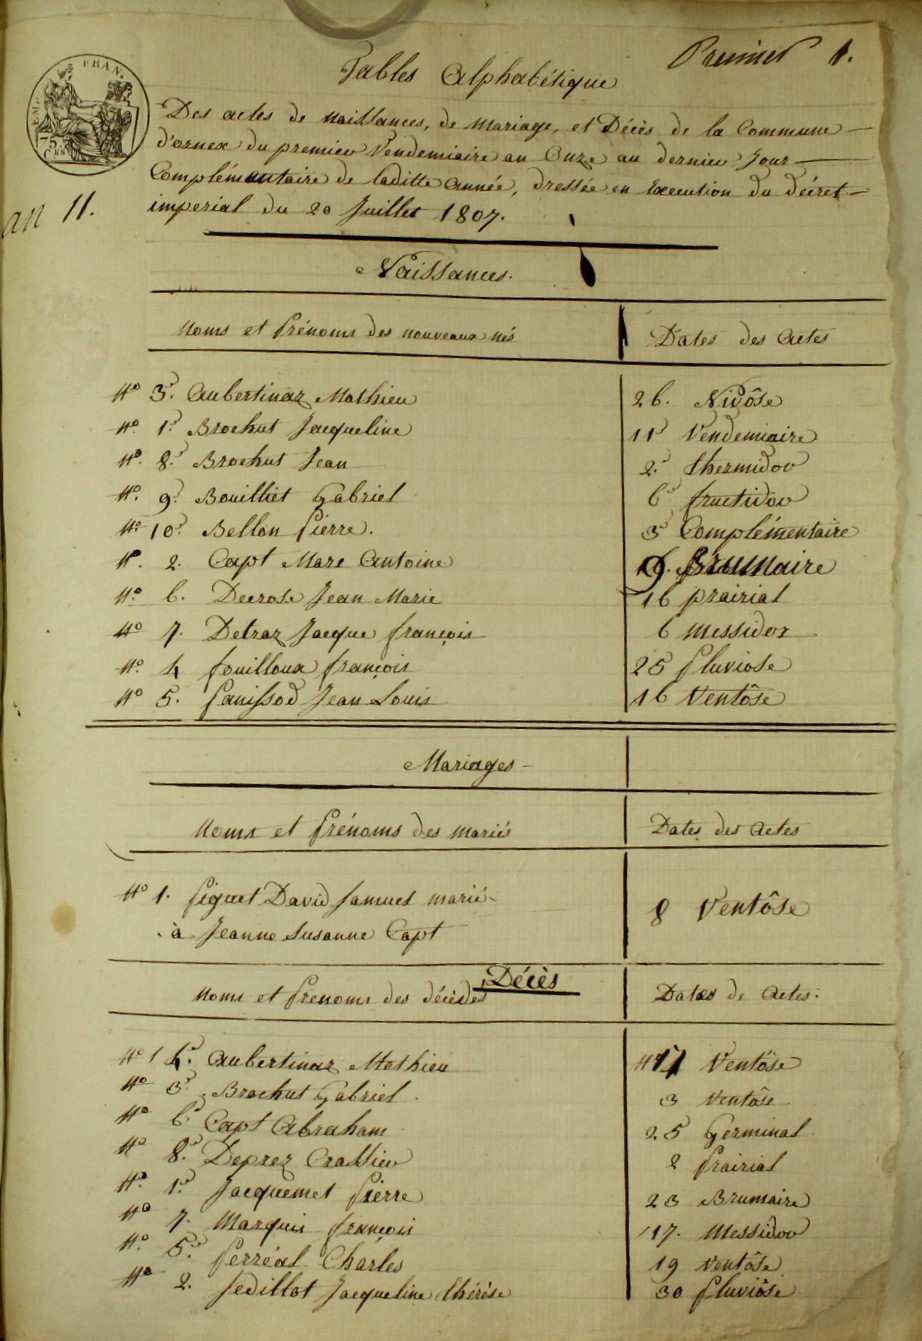 Premier 1.
Tables Alphabétique
EMP. FRAN.
75 C.
Des actes de naissances, de mariage, et Décès de la Commune
d'ornex du premier Vendemiaire an Onze au dernier Jour
Complémentaire de laditte année, dressée en execution du décret
imperial du 20 Juillet 1807.
an 11.
Naissances.
Noms et Prénoms des nouveaux nés Dates des Actes
No 3. Aubertinaz Mathieu 26. Nivôse
No. 1. Brochut Jacqueline 11 Vendemiaire
No. 8. Brochut Jean 2. thermidor
No. 9. Bouilliet Gabriel 6 fructidor
No 10. Bellon Pierre. 3 Complémentaire
No. 2. Capt Marc Antoine 9 Brumaire
No. 6. Decrose Jean Marie 16 prairial
No 7. Detraz Jacque françois 6 Messidor
No. 4 fouilloux françois 25 Pluviose
No 5. Panissod Jean Louis 16 Ventôse
Mariages
Noms et Prénoms des mariés Dates des Actes
No 1. Piguet David Samuel marié
à Jeanne Susanne Capt 8 Ventôse
Décès
Noms et Prenoms des décédés Dates de Actes.
No 4. Aubertinaz Mathieu Ventôse
No 3 Brochut Gabriel. 3 Ventôse
No 6. Capt Abraham 25 Germinal
No 8. Deprez 2 Prairial
No. 1. Jacquemet Pierre 23 Brumaire
No 7. Marquis françois 17. Messidor
No. 5. Perréal Charles 19 Ventôse
No 2. Sedillot Jacqueline thérèse 30 Pluviôse